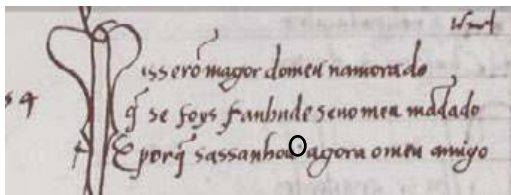 isserõ magor domeu namorado
q̃ se foys sanhude senomeu mãdado
E porq̃ sassanhou agora omeu amigo